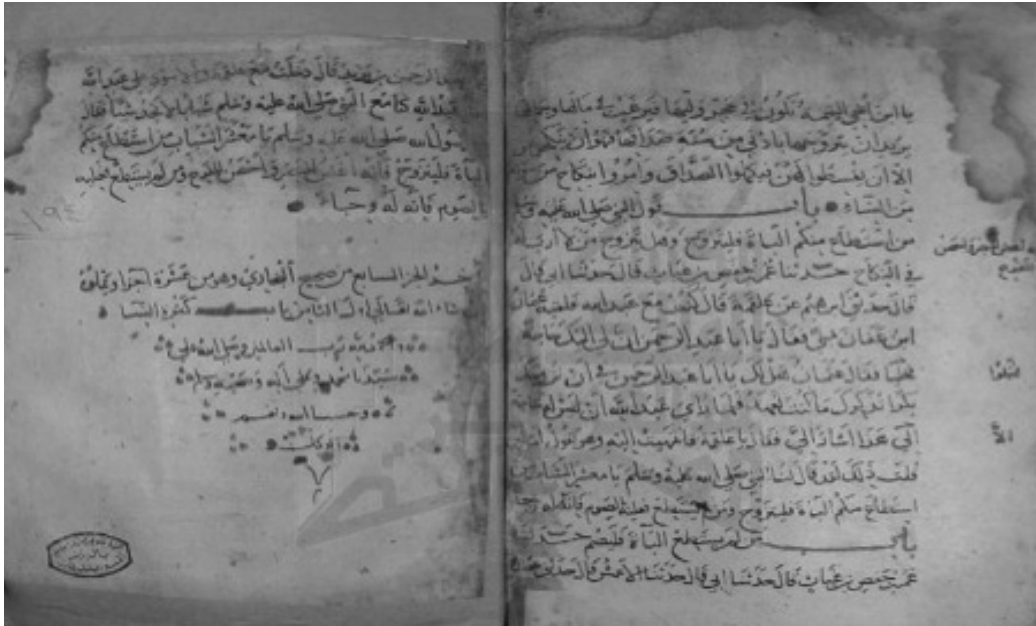 يا ابن أختي اليتيمة تكون في حجر وليها فيرغب في مالها وجمالها
يريد ان يتزوجها بادنى من سنة صداقها فنهوا ان ينكحوهن
الا ان يقسطوا لهن فيكملوا الصداق وامروا بنكاح من سواهن
من النساء باب قول النبي صلى الله عليه وسلم
من استطاع منكم الباءة فليتزوج وهل يتزوج من لا ارب له
في النكاح حدثنا عمر بن حفص بن غياث قال حدثنا ابي قال
قال حدثني ابرهيم عن علقمة قال كنت مع عبد الله فلقيه عثمان
ابن عفان بمنى فقال يا ابا عبد الرحمن ان لي اليك حاجة
فخليا فقال عثمان هل لك يا ابا عبد الرحمن في ان نزوجك
بكرا تذكرك ما كنت تعهد فلما راى عبد الله ان ليس له حاجة
الى هذا اشار الي فقال يا علقمة فانتهيت اليه وهو يقول اما لئن
قلت ذلك لقد قال لنا النبي صلى الله عليه وسلم يا معشر الشباب من
استطاع منكم الباءة فليتزوج ومن لم يستطع فعليه بالصوم فانه له وجاء
باب من لم يستطع الباءة فليصم حدثنا
عمر بن حفص بن غياث قال حدثنا ابي قال حدثنا الاعمش قال حدثني عمارة
فخلوا
الا
عبد الرحمن بن يزيد قال دخلت مع علقمة والاسود على عبد الله
فقال عبد الله كنا مع النبي صلى الله عليه وسلم شبابا لا نجد شيئا فقال
رسول الله صلى الله عليه وسلم يا معشر الشباب من استطاع منكم
الباءة فليتزوج فانه اغض للبصر واحصن للفرج ومن لم يستطع فعليه
بالصوم فانه له وجاء
١٩٤
آخر الجزء السابع من صحيح البخاري وهو من عشرة اجزاء ويتلوه
ان شاء الله تعالى اول الثامن باب كثرة النسا
والحمد لله رب العالمين وصلى الله على
سيدنا محمد وعلى آله وصحبه وسلم
وحسبنا الله ونعم
الوكيل